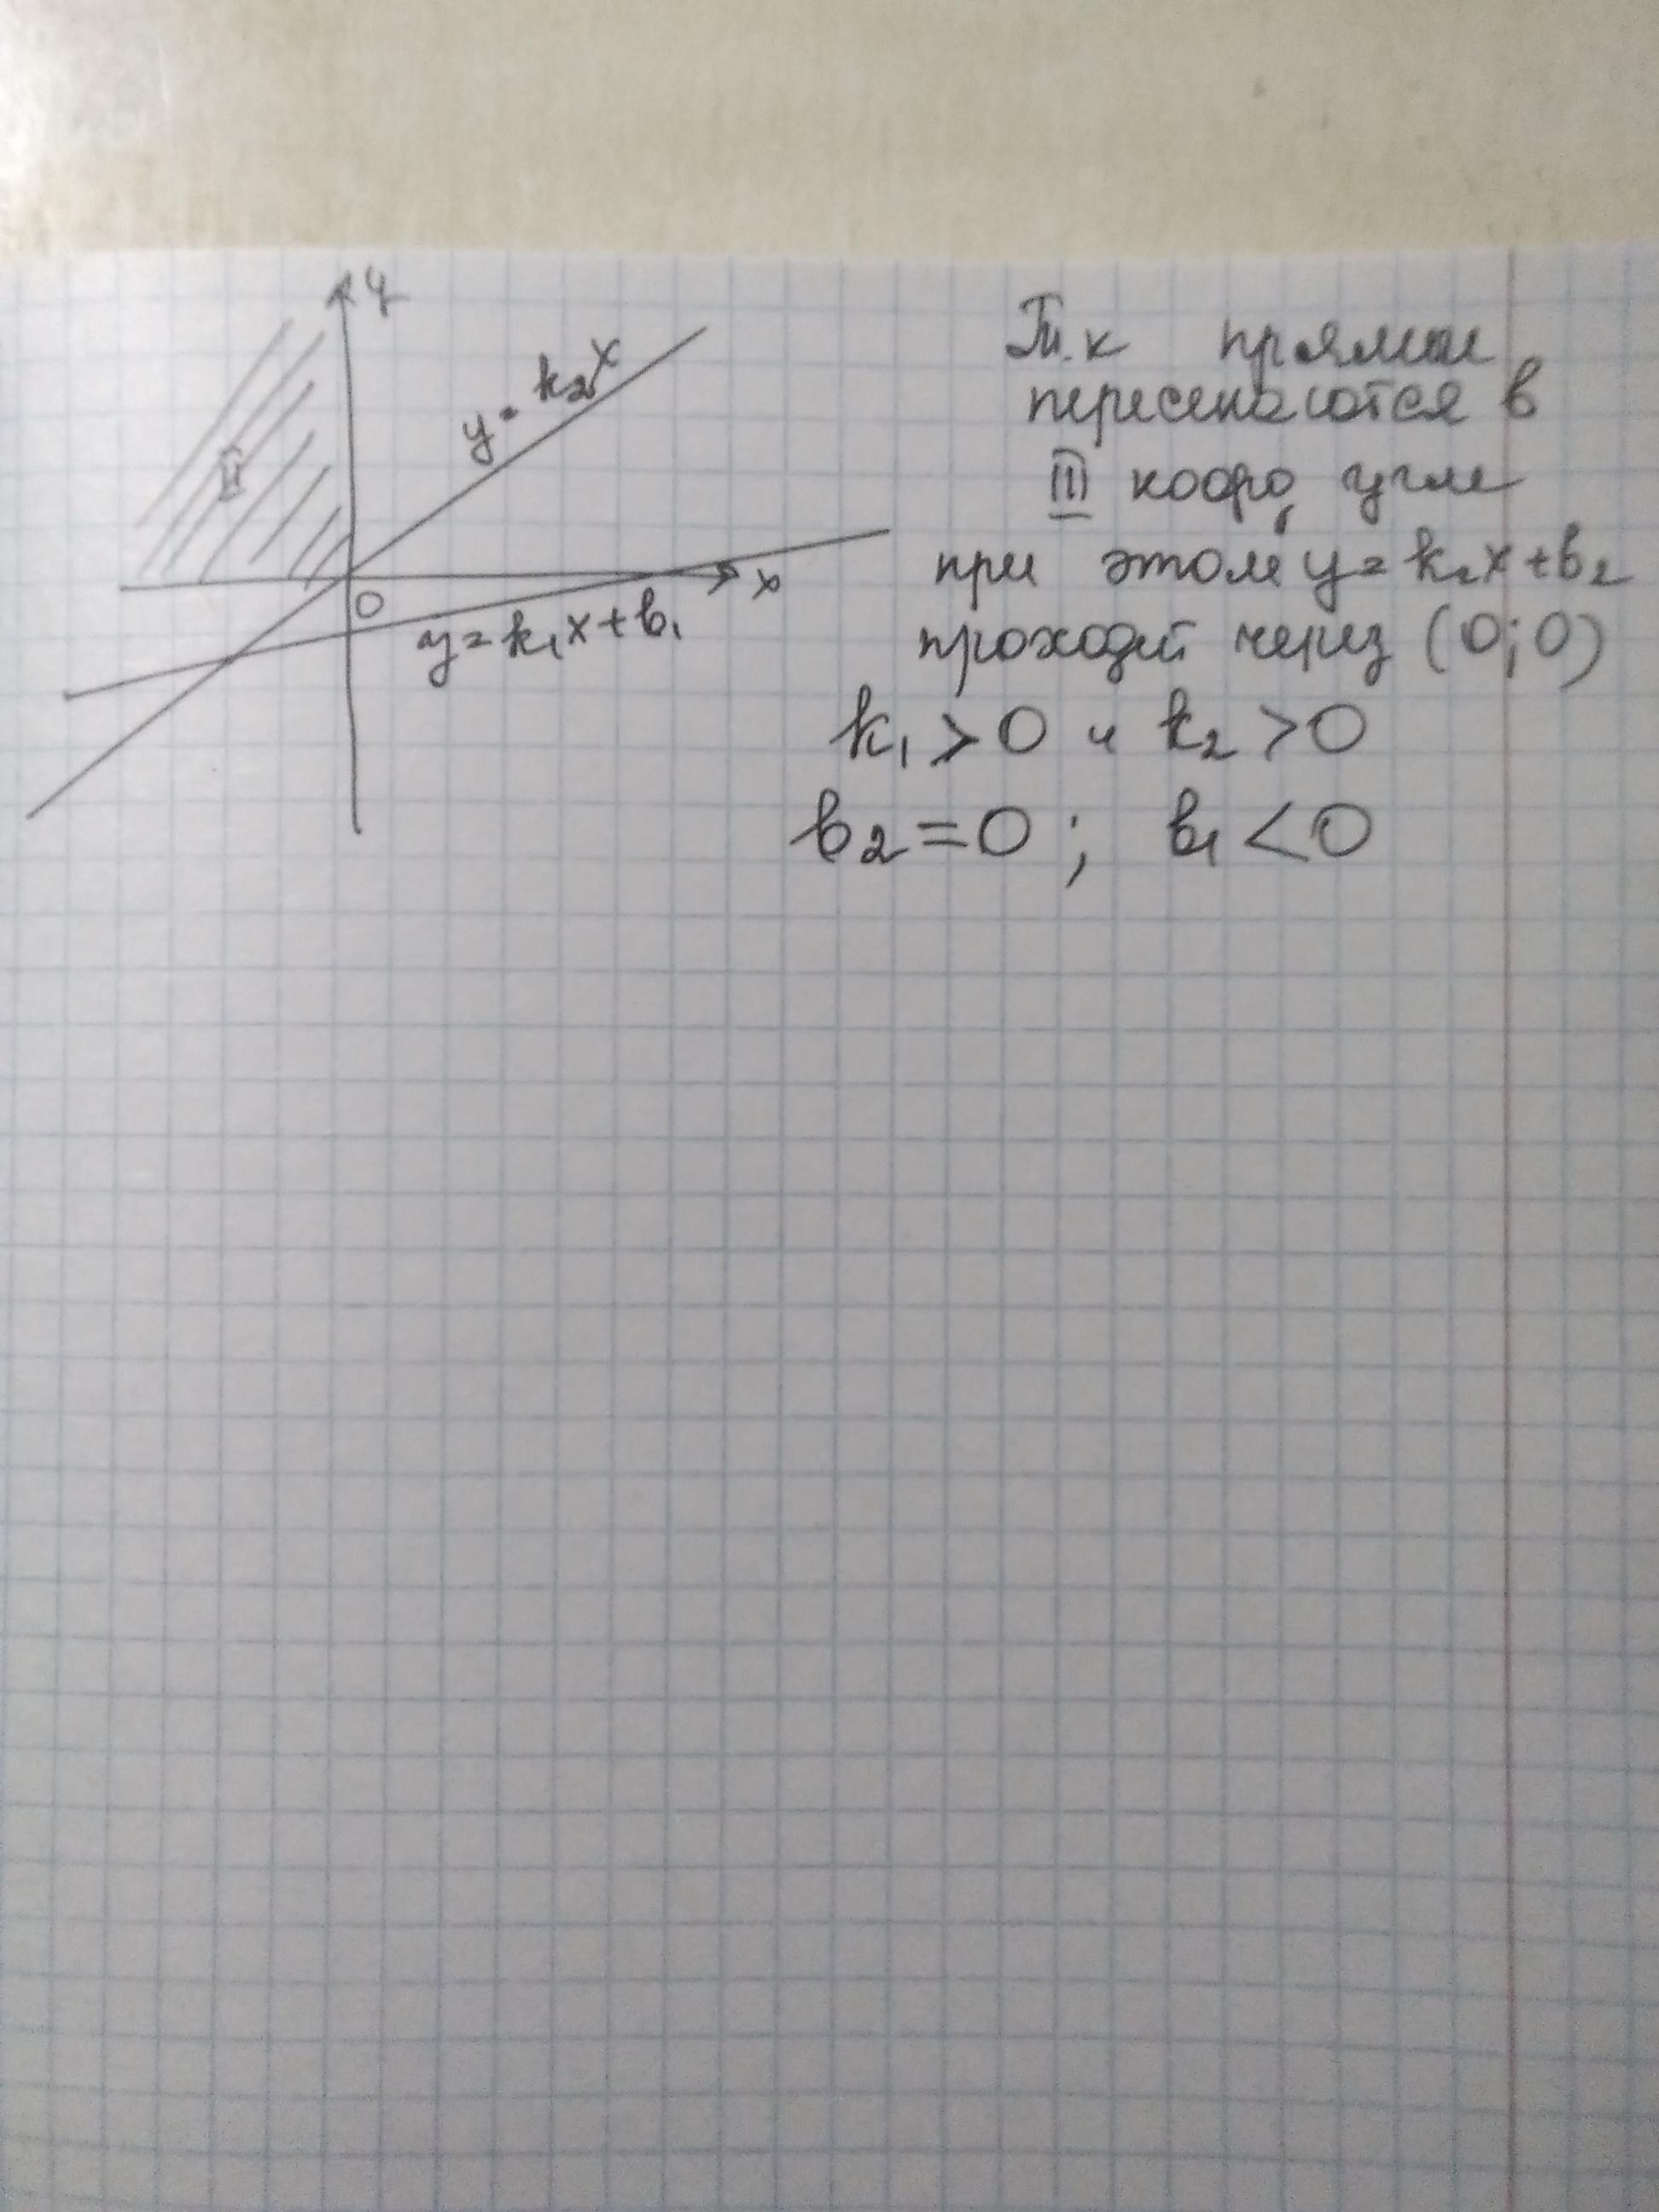 y
y = k₂x
II
0
x
y = k₁x + b₁
Т.к прямые
пересекаются в
III коорд угле
при этом y = k₂x + b₂
проходит через (0; 0)
k₁ > 0 и k₂ > 0
b₂ = 0 ; b₁ < 0